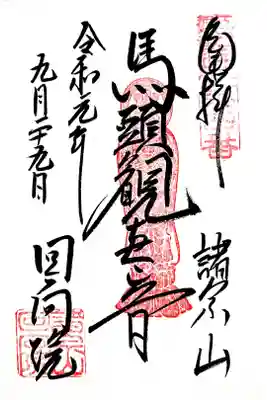 奉拝
諸宗山
馬頭観世音
回向院
令和元年
九月二十九日